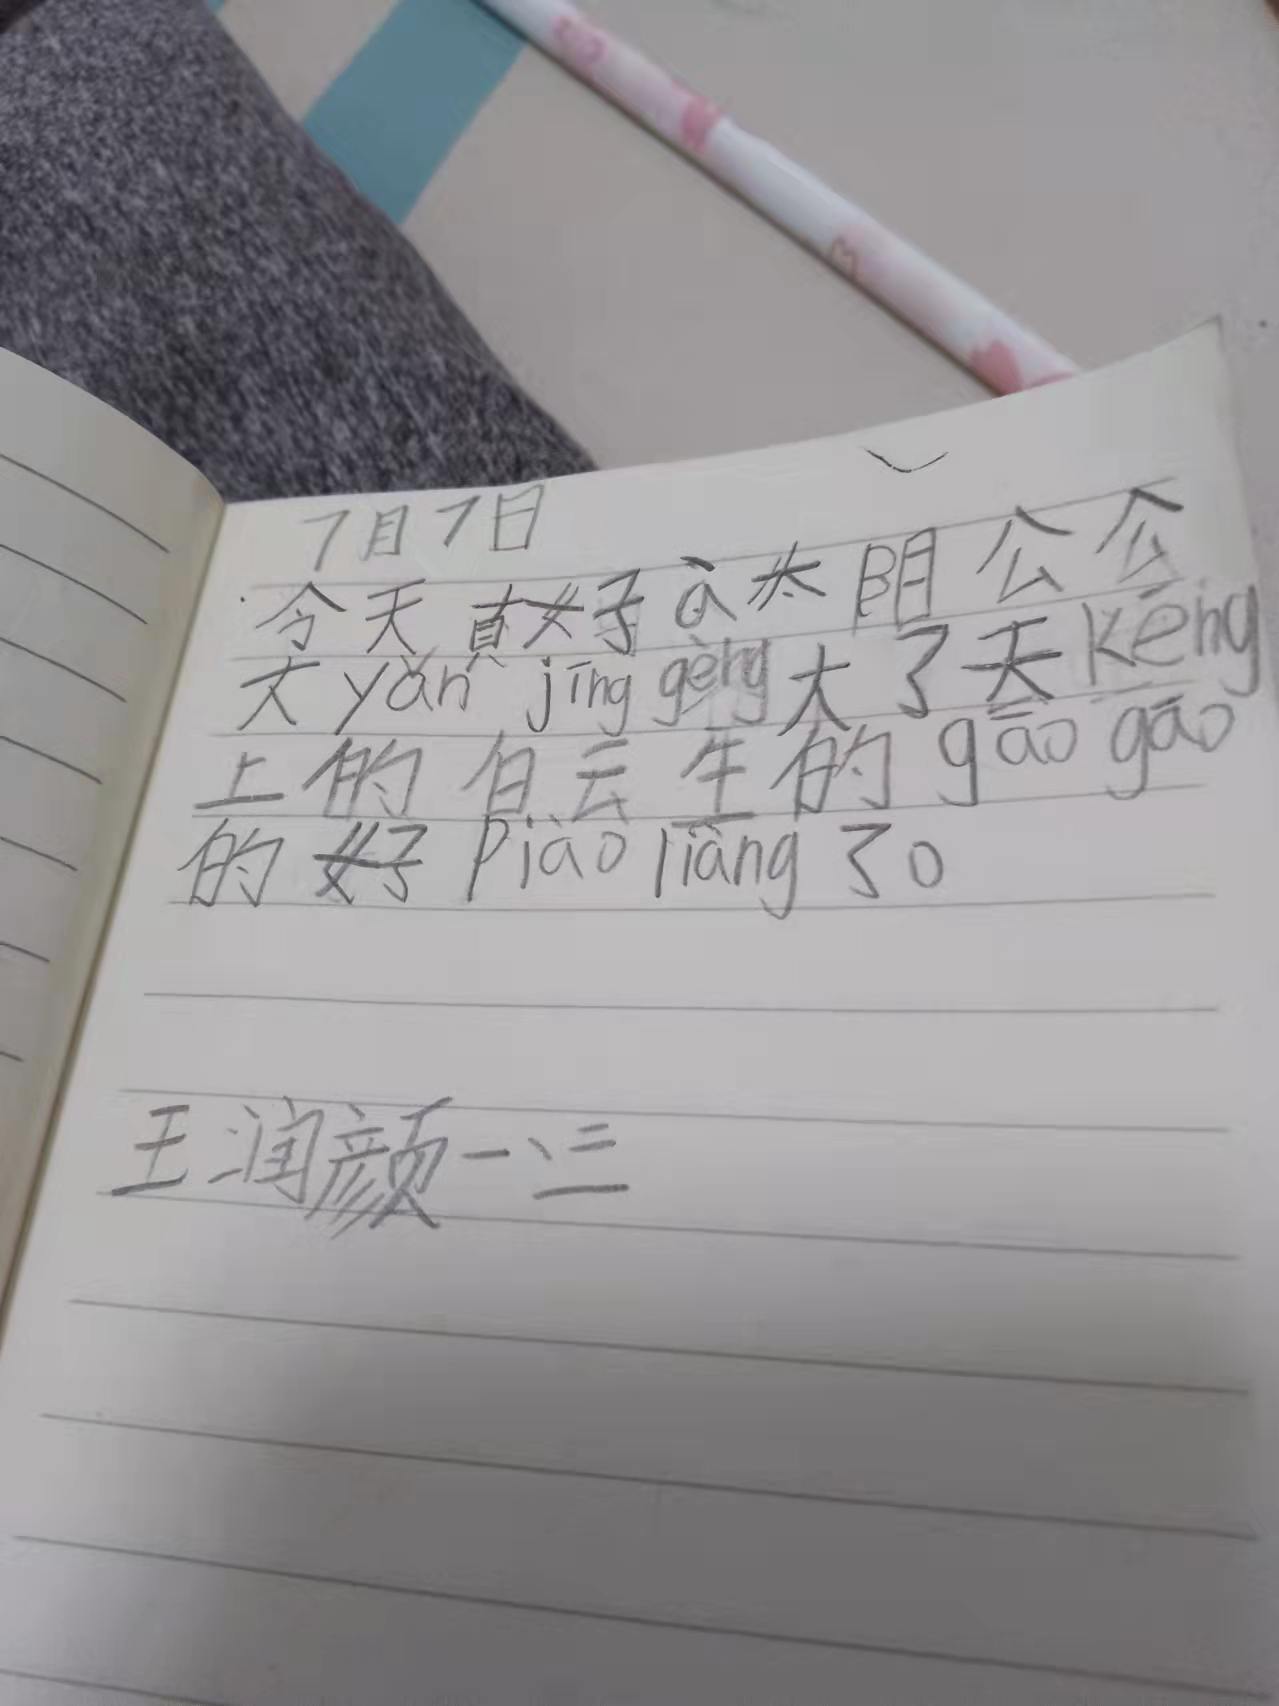 7月7日
今天真好à太阳公公
大yǎn jīng gèng大了天kēng
上的白云生的gāo gāo
的好piào liàng了。
王润颜一、三